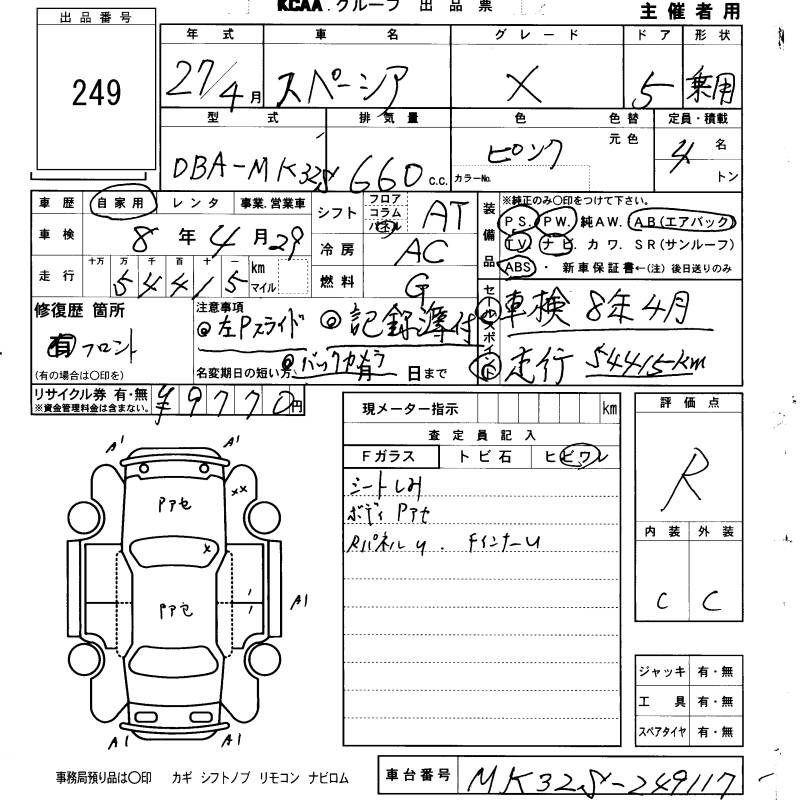 KCAA グループ 出品票
主催者用
出品番号
249
年式 車名 グレード ドア 形状
27/4月 スペーシア X 5 乗用
型式 排気量 色 色替 定員・積載
元色
DBA-MK32S 660 c.c. ピンク 4名
カラーNo.
トン
車歴 自家用 レンタ 事業.営業車
シフト フロア コラム パネル AT
車検 8年4月29
冷房 AC
走行 十万 万 千 百 十 一 km マイル
54415
燃料 G
装備品
※純正のみ○印をつけて下さい。
PS. PW. 純AW. AB(エアバック)
TV ナビ. カワ. SR(サンルーフ)
ABS ・ 新車保証書←(注)後日送りのみ
修復歴 箇所
有 フロント
(有の場合は○印を)
注意事項
◎左Pスライド ◎記録簿付
◎バックカメラ
名変期日の短い方 月 日まで
セールスポイント
車検 8年4月
走行 54415km
リサイクル券 有・無 ¥9770円
※資金管理料金は含まない。
現メーター指示 km
査定員記入
Fガラス トビ石 ヒビワレ
シートしみ
ボディ Pアセ
Rパネルu. Fインナーu
評価点
R
内装 外装
C C
A1 A1
Pアセ XX
X
Pアセ
A1
A1 A1
ジャッキ 有・無
工具 有・無
スペアタイヤ 有・無
事務局預り品は○印 カギ シフトノブ リモコン ナビロム
車台番号 MK32S-249117